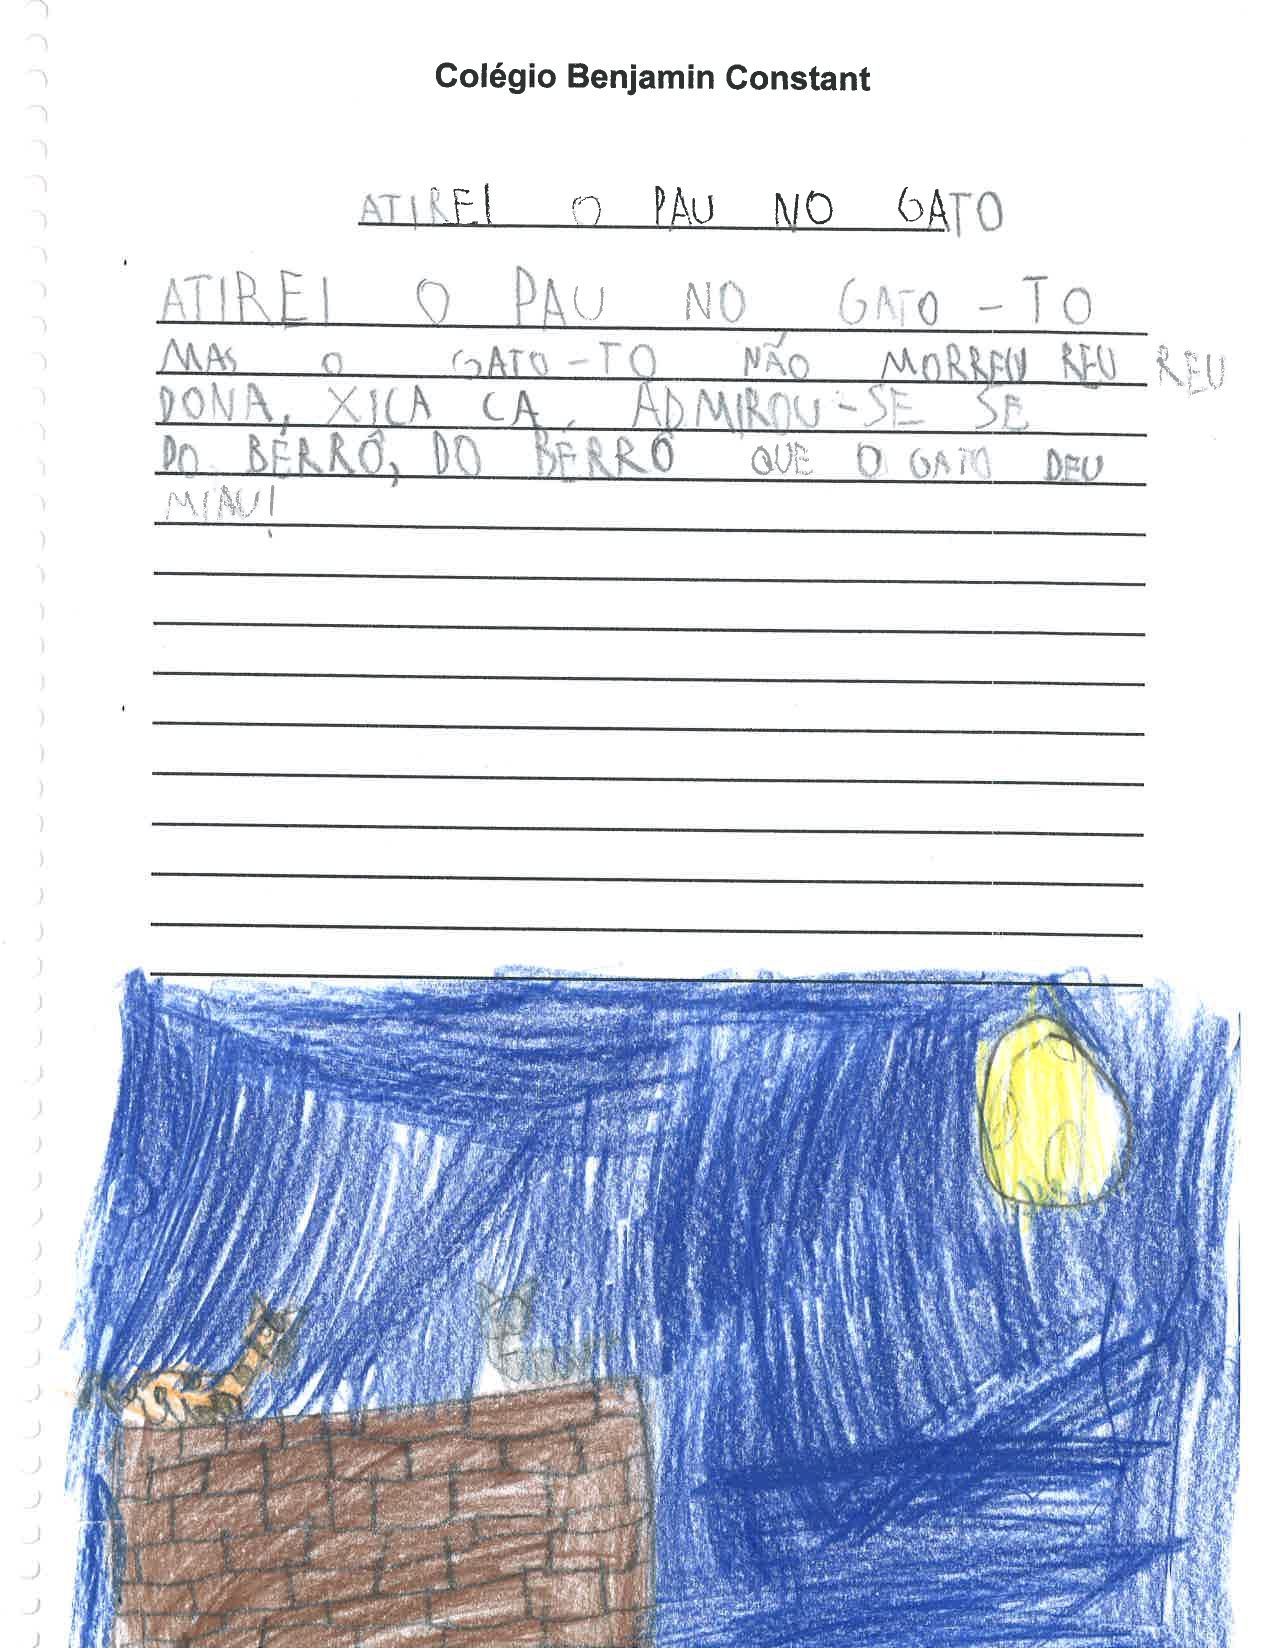 Colégio Benjamin Constant
ATIREI O PAU NO GATO
ATIREI O PAU NO GATO-TO
MAS O GATO-TO NÃO MORREU REU REU
DONA, XICA CA, ADMIROU-SE SE
DO BÉRRÔ, DO BÉRRÔ QUE O GATO DEU
MIAU!